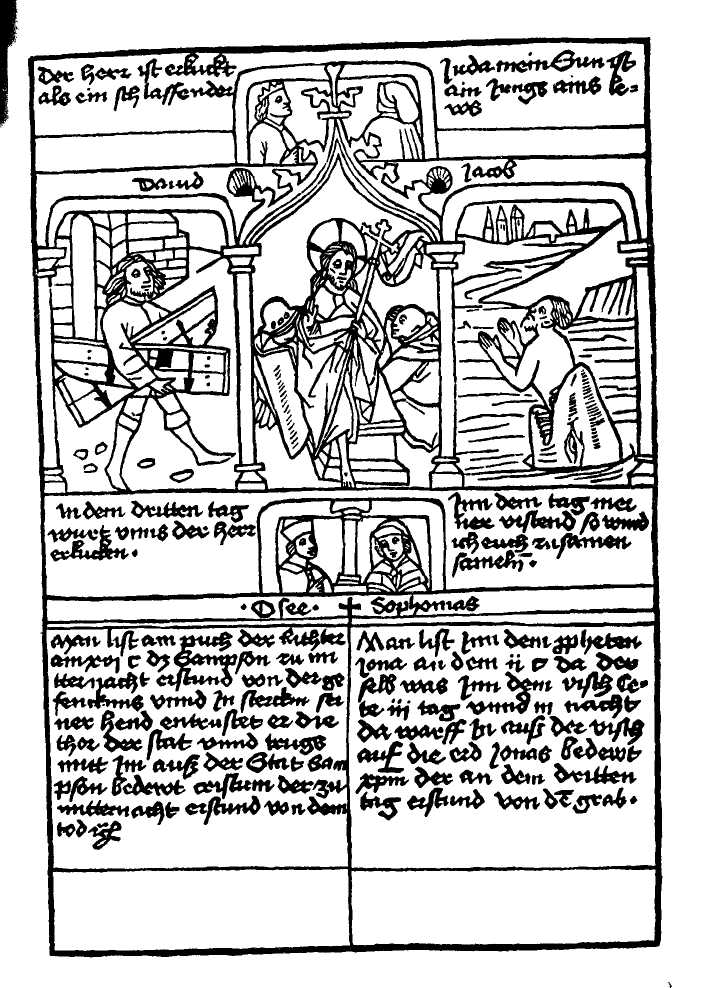 Der herr ist erkuckt
als ein schlaffender
Juda mein Sun ist
ain Jungs ains le-
ws
Dauid
Jacob
In dem dritten tag
wurt vnns der herr
erkucken.
Inn dem tag mei
ner vrstend so wurd
ich euch zu samen
sameln.
Osee.
Sophonias
Man list am puch der Richter
am xvi c dz Sampson zu mi
tternacht erstund von der ge
fencknus vnnd In sterckin sei
ner hend entrustet er die
thor der stat vnnd trugs
mitt Im auß der Stat Sam
pson bedewt cristum der zu
mitternacht erstund von dem
tod
Man list Inn dem ppheten
Jona an dem ii c da der
selb was Inn dem visch Ce-
te iii tag vnnd iii nacht
da warff In auß der visch
auff die erd Jonas bedewt
xpm der an dem dritten
tag erstund von dē grab.